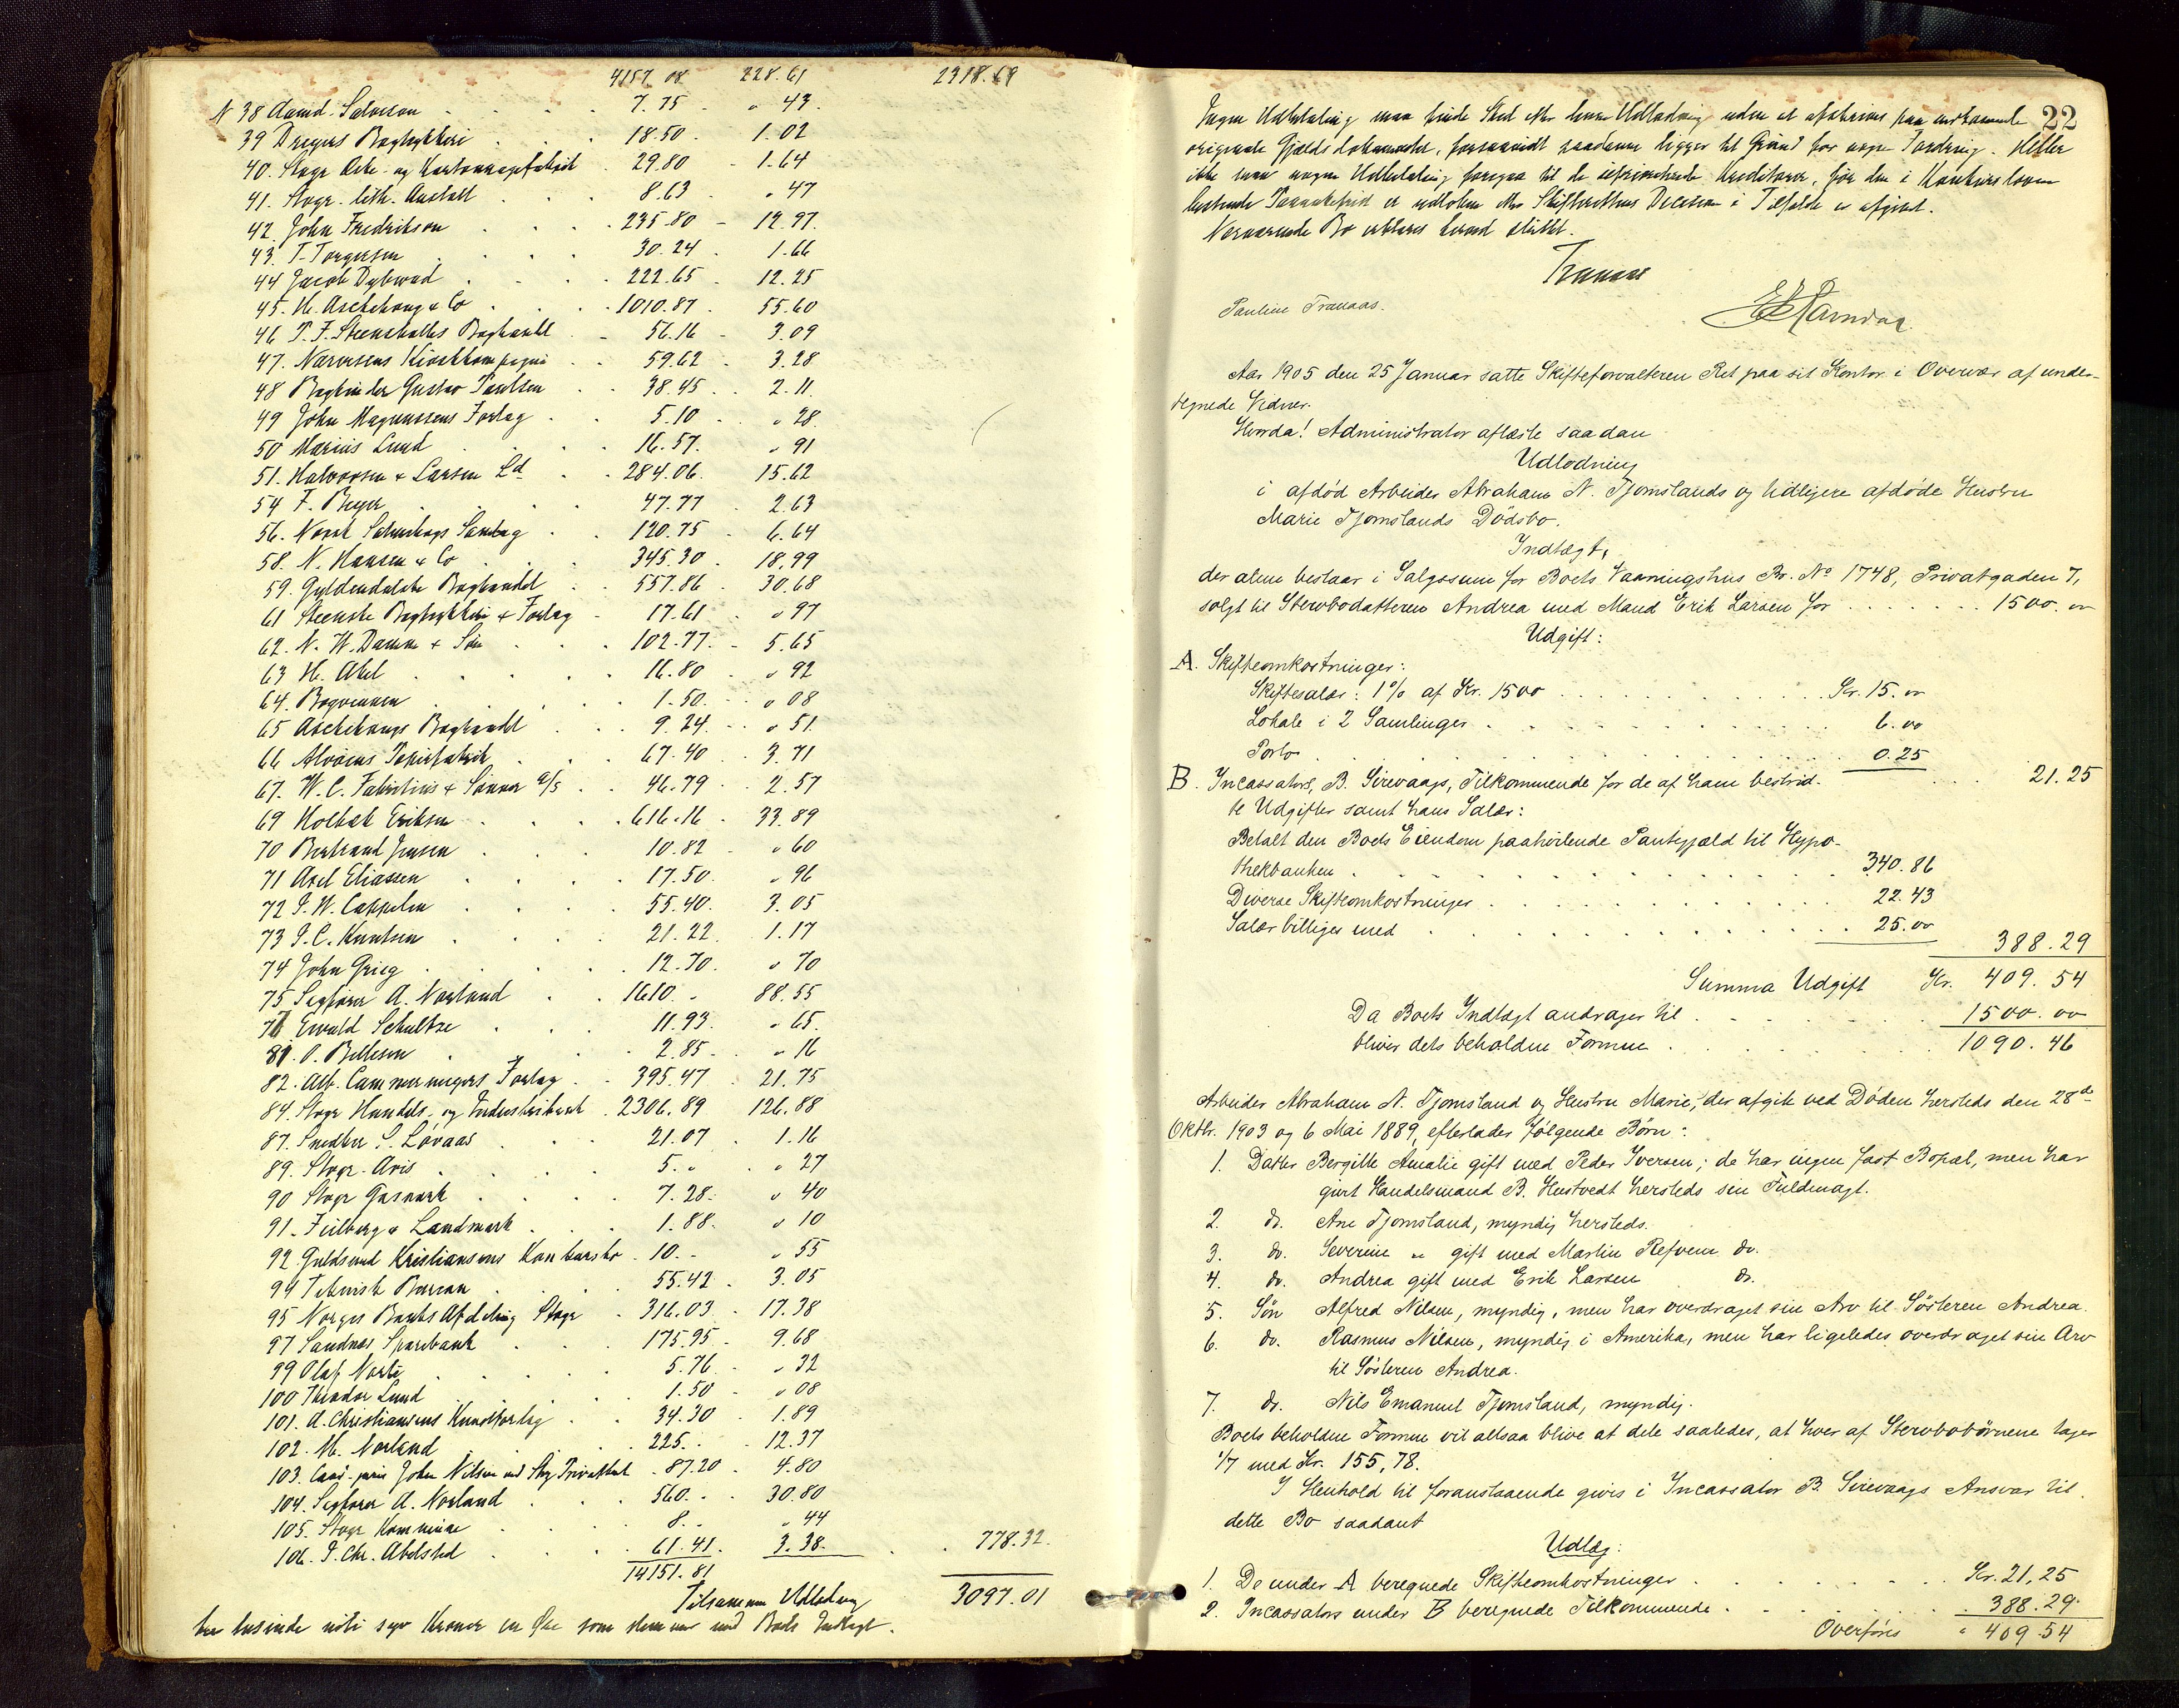 4157.08 228.61 2318.69
N 38 Aamd. Salvesen 7.75 " 43.
39 Dreyers Bogtrykkeri 18.50 1.02
40. Stagr Æske- og Kartonnagefabrik 29.80 1.64
41. Stvgr. lith. Anstalt 8.63 " 47
42. John Fredrikson 235.80 12.97.
43. T. Torgersen 30.24 1.66
44 Jacob Dybwad 222.65 12.25
45. H. Aschehoug & Co 1010.87 55.60
46 P. F. Steensballes Boghandl 56.16 3.09
47. Narvesens Kioskkompagni 59.62 3.28
48 Bogbinder Gustav Paulsen 38.45 2.11.
49 John Magnussens Forlag 5.10 " 28.
50 Marius Lund 16.57. " 91
51. Halvorsen & Larsen Ld 284.06. 15.62
54 F. Beyer 47.77 2.63
56. Norsk Selskabs Samlag 120.75 6.64
58. N. Hansen & Co 345.30 18.99
59. Gyldendalske Boghandel 557.86 30.68
61 Steenske Bogtrykkeri & Forlag 17.61 " 97
62. N. W. Damm & Søn 102.77. 5.65
63 H. Abel 16.80 " 92
64. Bogvennen 1.50. " 08
65 Aschehougs Boghandel 9.24. " 51.
66 Alvøens Papirfabrik 67.40 3.71
67. W. C. Fabritius & Sønner A/S 46.79 2.57
69 Holbæk Eriksen 616.16 33.89
70 Bertrand Jensen 10.82 " 60
71 Axel Eliassen 17.50. " 96
72 J. W. Cappelen 55.40. 3.05
73 J. C. Knutsen 21.22. 1.17
74 John Grieg 12.70. " 70
75 Sagfører A. Norland 1610. " 88.55
76 Ewald Schultze 11.93. " 65.
81. O. Bellesen 2.85 " 16
82. Alb. Cammermeyers Forlag 395.47 21.75
84. Stvgr Handels- og Industribank 2306.89 126.88
87. Snedker S. Løvaas 21.07 1.16
89. Stvgr. Avis 5. " " 27
90 Stvgr Gasværk 7.28. " 40
91. Feilberg & Landmark 1.88. " 10
92. Guldsmed Kristiansens Konkursbo 10. " " 55
94 Teknisk Bureau 55.42 3.05
95 Norges Banks Afdeling Stvgr 316.03 17.38
97 Sandnes Sparebank 175.95 9.68
99 Olaf Norli 5.76 " 32
100 Theodor Lund 1.50 " 08
101. A. Christiansens Kunstforlag 34.30 1.89
102. M. Norland 225. " 12.37
103. Cand. juris John Nilsen ved Stvgr Privatbank 87.20 4.80
104. Sagfører A. Norland 560. " 30.80
105. Stvgr Kommune 8. " " 44
106. J. Chr. Abelsted 61.41. 3.38. 778.32.
14151.81
Tilsammen Udlodning 3097.01
tre tusinde nitti syv Kroner en Øre som stemmer med Boets Indtægt.
22
Ingen Udbetaling maa finde Sted efter denne Udlodning uden at afskrives paa vedkommende
originale Gjældsdokumenter, forsaavidt saadanne ligger til Grund for nogen Fordring. Heller
ikke maa nogen Udbetaling foregaa til de uprioriterede Kreditorer, før den i Konkursloven
bestemte Paaankefrist er udløben eller Skifterettens Decision i Tilfælde er afgivet.
Nærværende Bo erklæres hermed sluttet.
Tranaas
Pauline Tranaas.
Aar 1905 den 25 Januar satte Skifteforvalteren Ret paa sit Kontor i Overvær af under-
tegnede Vidner.
Hvorda! Administrator aflæste saadan
Udlodning
i afdød Arbeider Abraham N. Tjomslands og tidligere afdøde Hustru
Marie Tjomslands Dødsbo.
Indtægt,
der alene bestaar i Salgssum for Boets Vaaningshus Br. No 1748, Privatgaden 7,
solgt til Stervbodatteren Andrea med Mand Erik Larsen for 1500. "
Udgift:
A. Skifteomkostninger:
Skiftesalær: 1% af Kr. 1500 Kr. 15. "
Lokale i 2 Samlinger 6.00
Porto 0.25
21.25
B. Incassators, B. Sirevaags, Tilkommende for de af ham bestrid-
te Udgifter samt hans Salær:
Betalt den Boets Eiendom paahvilende Pantegjæld til Hypo-
thekbanken 340.86
Diverse Skifteomkostninger 22.43
Salær billiges med 25.00
388.29
Summa Udgift Kr. 409.54
Da Boets Indtægt andrager til 1500.00
bliver dets beholdne Formue 1090.46
Arbeider Abraham N. Tjomsland og Hustru Marie, der afgik ved Døden hersteds den 28de
Oktbr. 1903 og 6 Mai 1889, efterlader følgende Børn:
1. Datter Bergitte Amalie gift med Peder Iversen; de har ingen fast Bopæl, men har
givet Handelsmand B. Hustvedt hersteds sin Fuldmagt.
2. do. Ane Tjomsland, myndig hersteds.
3. do. Severine " gift med Martin Refvem do.
4. do. Andrea gift med Erik Larsen do.
5. Søn Alfred Nilsen, myndig, men har overdraget sin Arv til Søsteren Andrea.
6. do. Rasmus Nilsen, myndig i Amerika, men har ligeledes overdraget sin Arv
til Søsteren Andrea.
7. do. Nils Emanuel Tjomsland, myndig.
Boets beholdne Formue vil altsaa blive at dele saaledes, at hver af Stervbobørnene tager
1/7 med Kr. 155,78.
I Henhold til foranstaaende givis i Incassator B. Sirevaags Ansvar til
dette Bo saadant
Udlæg:
1. De under A beregnede Skifteomkostninger Kr. 21,25
2. Incassators under B beregnede Tilkommende 388.29.
Overføres " 409.54